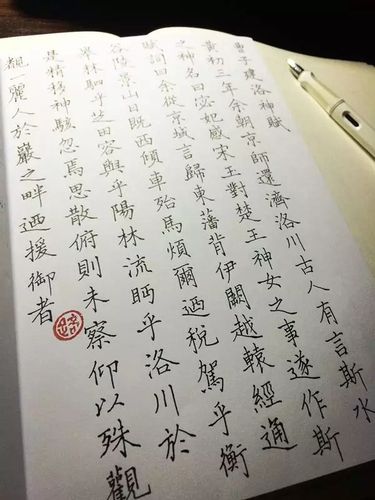 曹子建洛神賦
黃初三年余朝京師還濟洛川古人有言斯水
之神名曰宓妃感宋玉對楚王神女之事遂作斯
賦詞曰余從京城言歸東藩背伊闕越轅經通
谷陵景山日既西傾車殆馬煩爾迺稅駕乎衡
皋秣駟乎芝田容與乎陽林流眄乎洛川於
是精移神駭忽焉思散俯則未察仰以殊觀
覩一麗人於巖之畔迺援御者